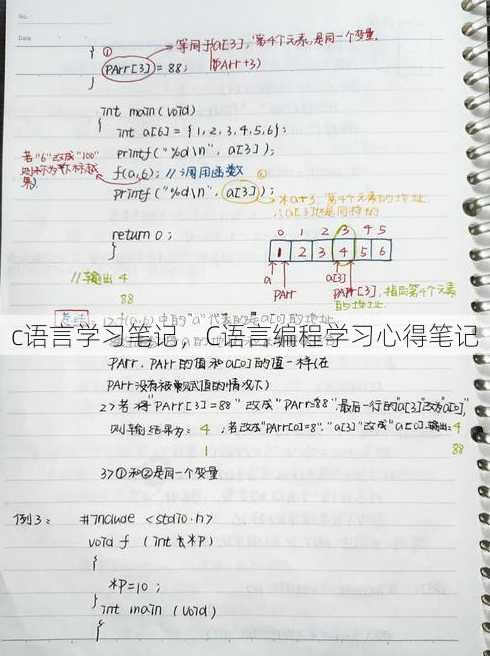 No.
Date
{ ① 等同于a[3],第4个元素,是同一个变量.
PArr[3] = 88; (PArr+3)
}
int main(void)
{ int a[6] = {1,2,3,4,5,6};
printf("%d\n", a[3]);
若"6"改成"100"
则称为数标越界
f(a,6); // 调用函数
printf("%d\n", a[3]); ②
*a+3 第4个元素的地址
return 0;
}
0 1 2 3 4 5
1 2 3 4 5 6
a PArr a[3] PArr[3], 指向第4个元素
的地址.
//输出 4
88
总结: 1>f(a,6)中的"a"代表的是a[0]的地址.
c语言学习笔记，C语言编程学习心得笔记
PArr. PArr的值和a[0]的值一样(在
PArr没有被赋值的情况下)
2>若将"PArr[3]=88"改成"PArr=88",最后一行的"a[3]"改成"a[0]",
则输出结果为: 4 ;若改成"PArr[0]=8","a[3]"改成"a[0]",输出: 4
1 88
3>①和②是同一个变量
例3: #include <stdio.h>
void f (int *P)
{
*P=10 ;
}
int main (void)
{